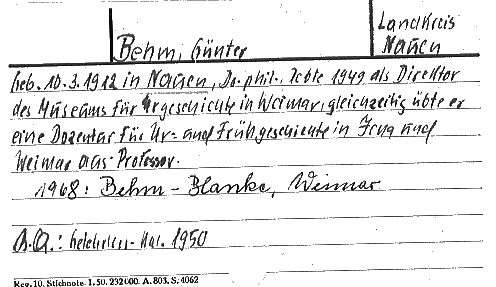 Landkreis
Behm, Günter Nauen
geb. 10.3.1912 in Nauen, Dr. phil., lebte 1949 als Direktor
des Museums für Urgeschichte in Weimar, gleichzeitig übte er
eine Dozentur für Ur- und Frühgeschichte in Jena und
Weimar aus. Professor.
1968: Behm-Blanke, Weimar
a.a.: Gelehrten-Kal. 1950
Reg. 10. Stichnote. 1. 50. 232000. A. 803. S. 4062